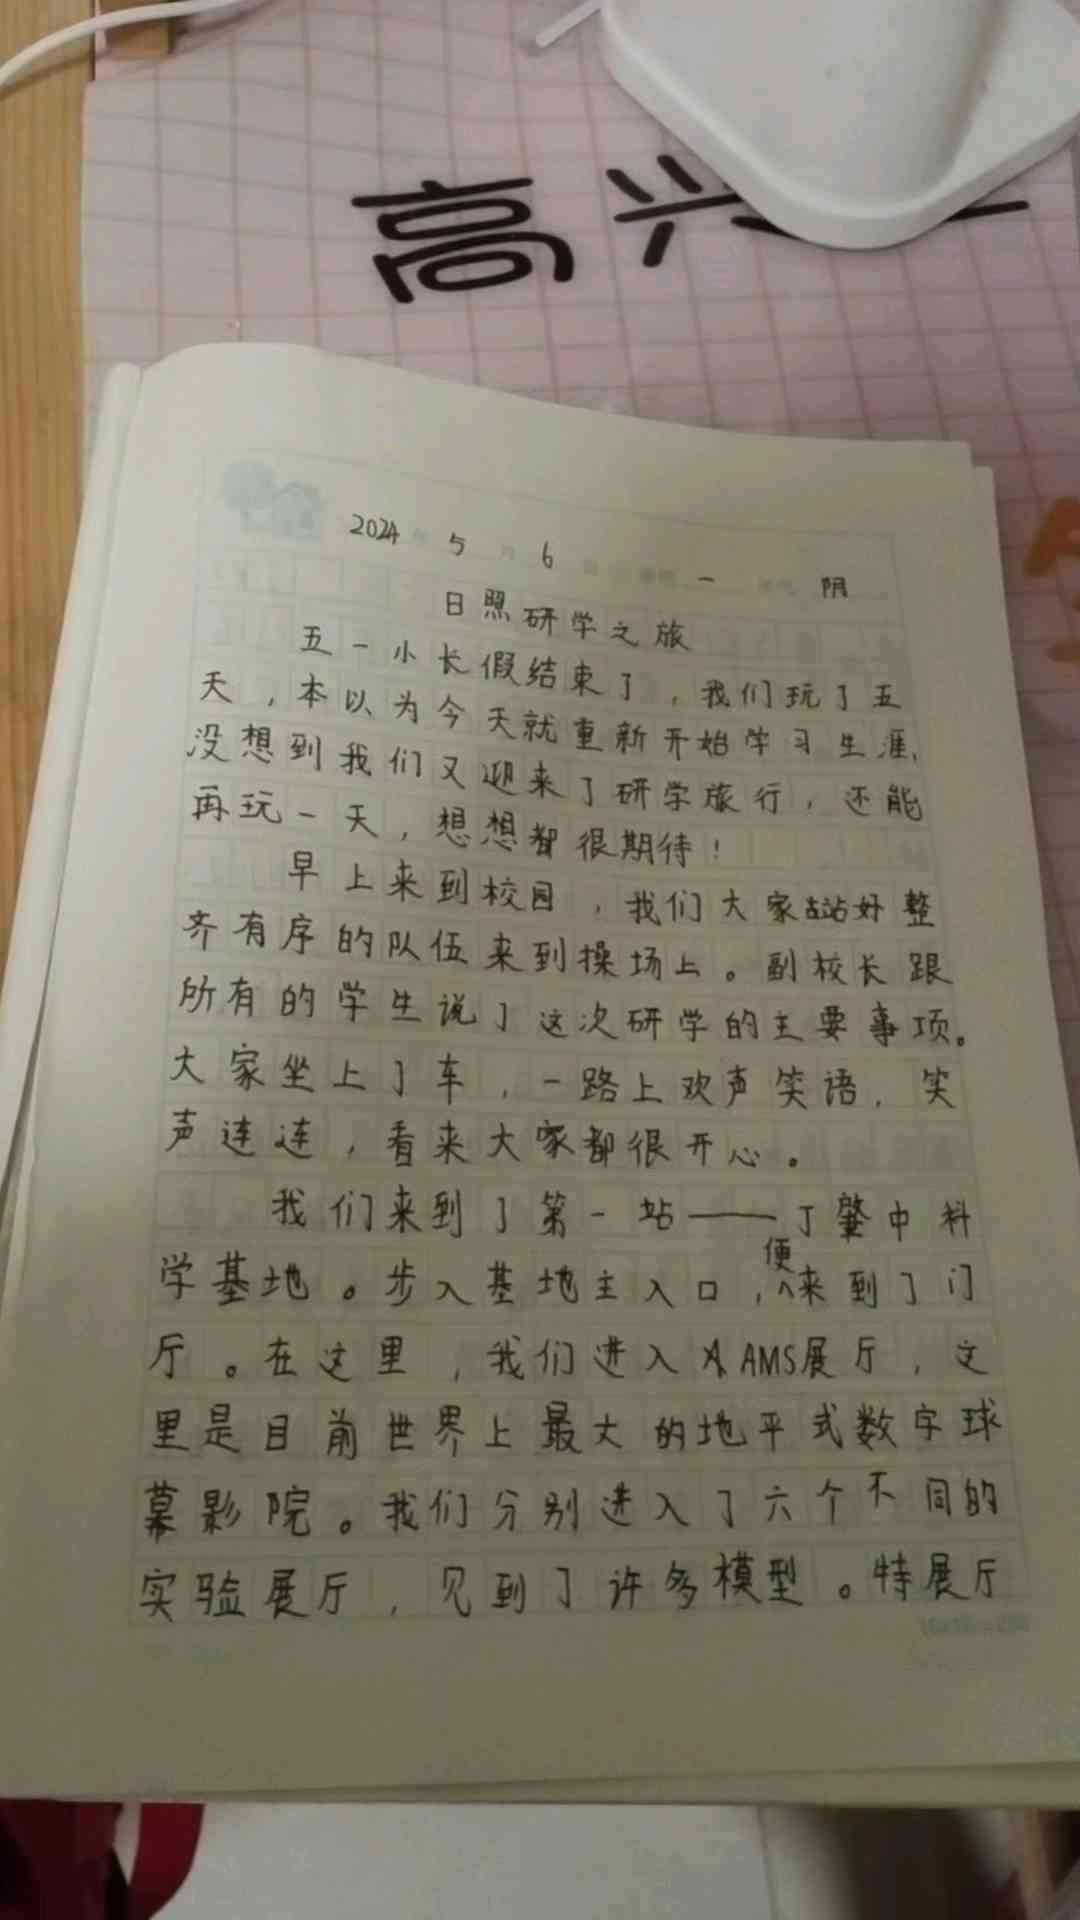 高兴
2024 5 6 一 阴
日照研学之旅
五一小长假结束了，我们玩了五
天，本以为今天就重新开始学习生涯，
没想到我们又迎来了研学旅行，还能
再玩一天，想想都很期待！
早上来到校园，我们大家站好整
齐有序的队伍来到操场上。副校长跟
所有的学生说了这次研学的主要事项。
大家坐上了车，一路上欢声笑语，笑
声连连，看来大家都很开心。
我们来到了第一站——丁肇中科
学基地。步入基地主入口，便来到了门
厅。在这里，我们进入AMS展厅，这
里是目前世界上最大的地平式数字球
幕影院。我们分别进入了六个不同的
实验展厅，见到了许多模型。特展厅